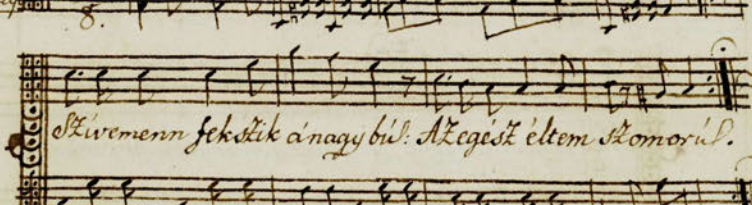 8.
Szívemenn fekszik a nagy búl: Az egész éltem szomorúl.